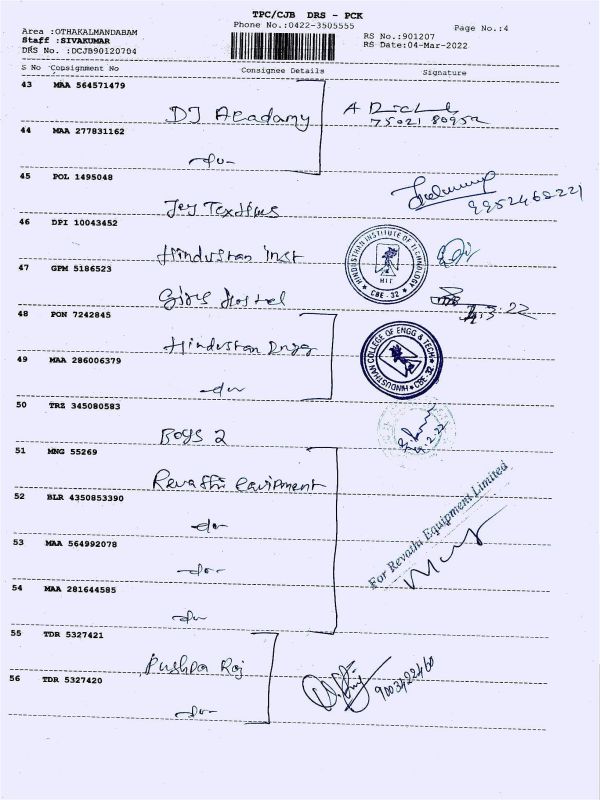 TPC/CJB DRS - PCK
Phone No.:0422-3505555
Page No.:4
Area :OTHAKALMANDABAM
Staff :SIVAKUMAR
DRS No. :DCJB90120704
RS No.:901207
RS Date:04-Mar-2022
S No Consignment No Consignee Details Signature
43 MAA 564571479
DJ Acadamy
75021 80952
44 MAA 277831162
-do-
45 POL 1495048
Jey Textiles
9952468221
46 DPI 10043452
Hindustan inst
HINDUSTHAN INSTITUTE OF TECHNOLOGY
HIT
CBE - 32
47 GPM 5186523
Girls Hostel
48 PON 7242845
Hindustan Engg
HINDUSTHAN COLLEGE OF ENGG & TECH
CBE-32
49 MAA 286006379
-do-
50 TRZ 345080583
Boys 2
51 MNG 55269
Revathi Equipment
For Revathi Equipment Limited
52 BLR 4350853390
-do-
53 MAA 564992078
-do-
54 MAA 281644585
-do-
55 TDR 5327421
Pushpa Raj
9003422460
56 TDR 5327420
-do-